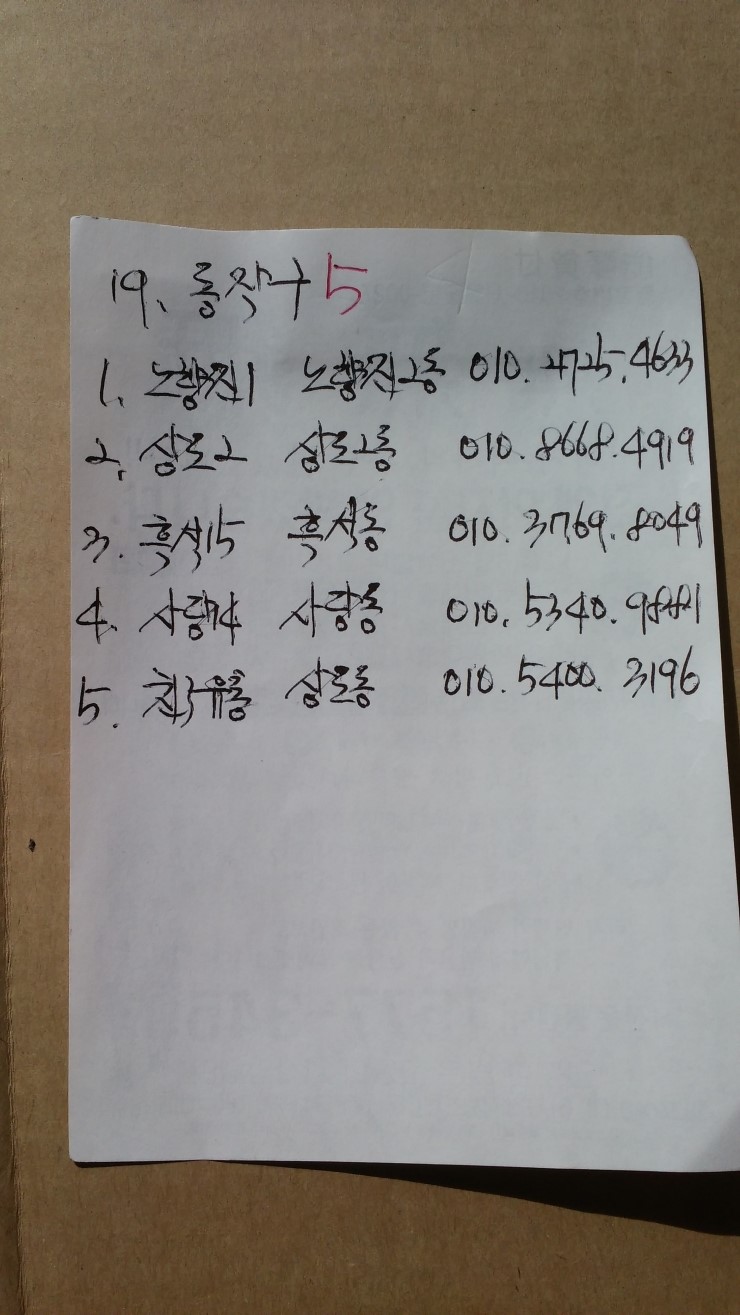 19. 동작구 5
1. 노량진1 노량진2동 010. 2725. 4633
2. 상도2 상도2동 010. 8668. 4919
3. 흑석15 흑석동 010. 3769. 8049
4. 사당74 사당동 010. 5340. 9881
5. 유통 상도동 010. 5400. 3196